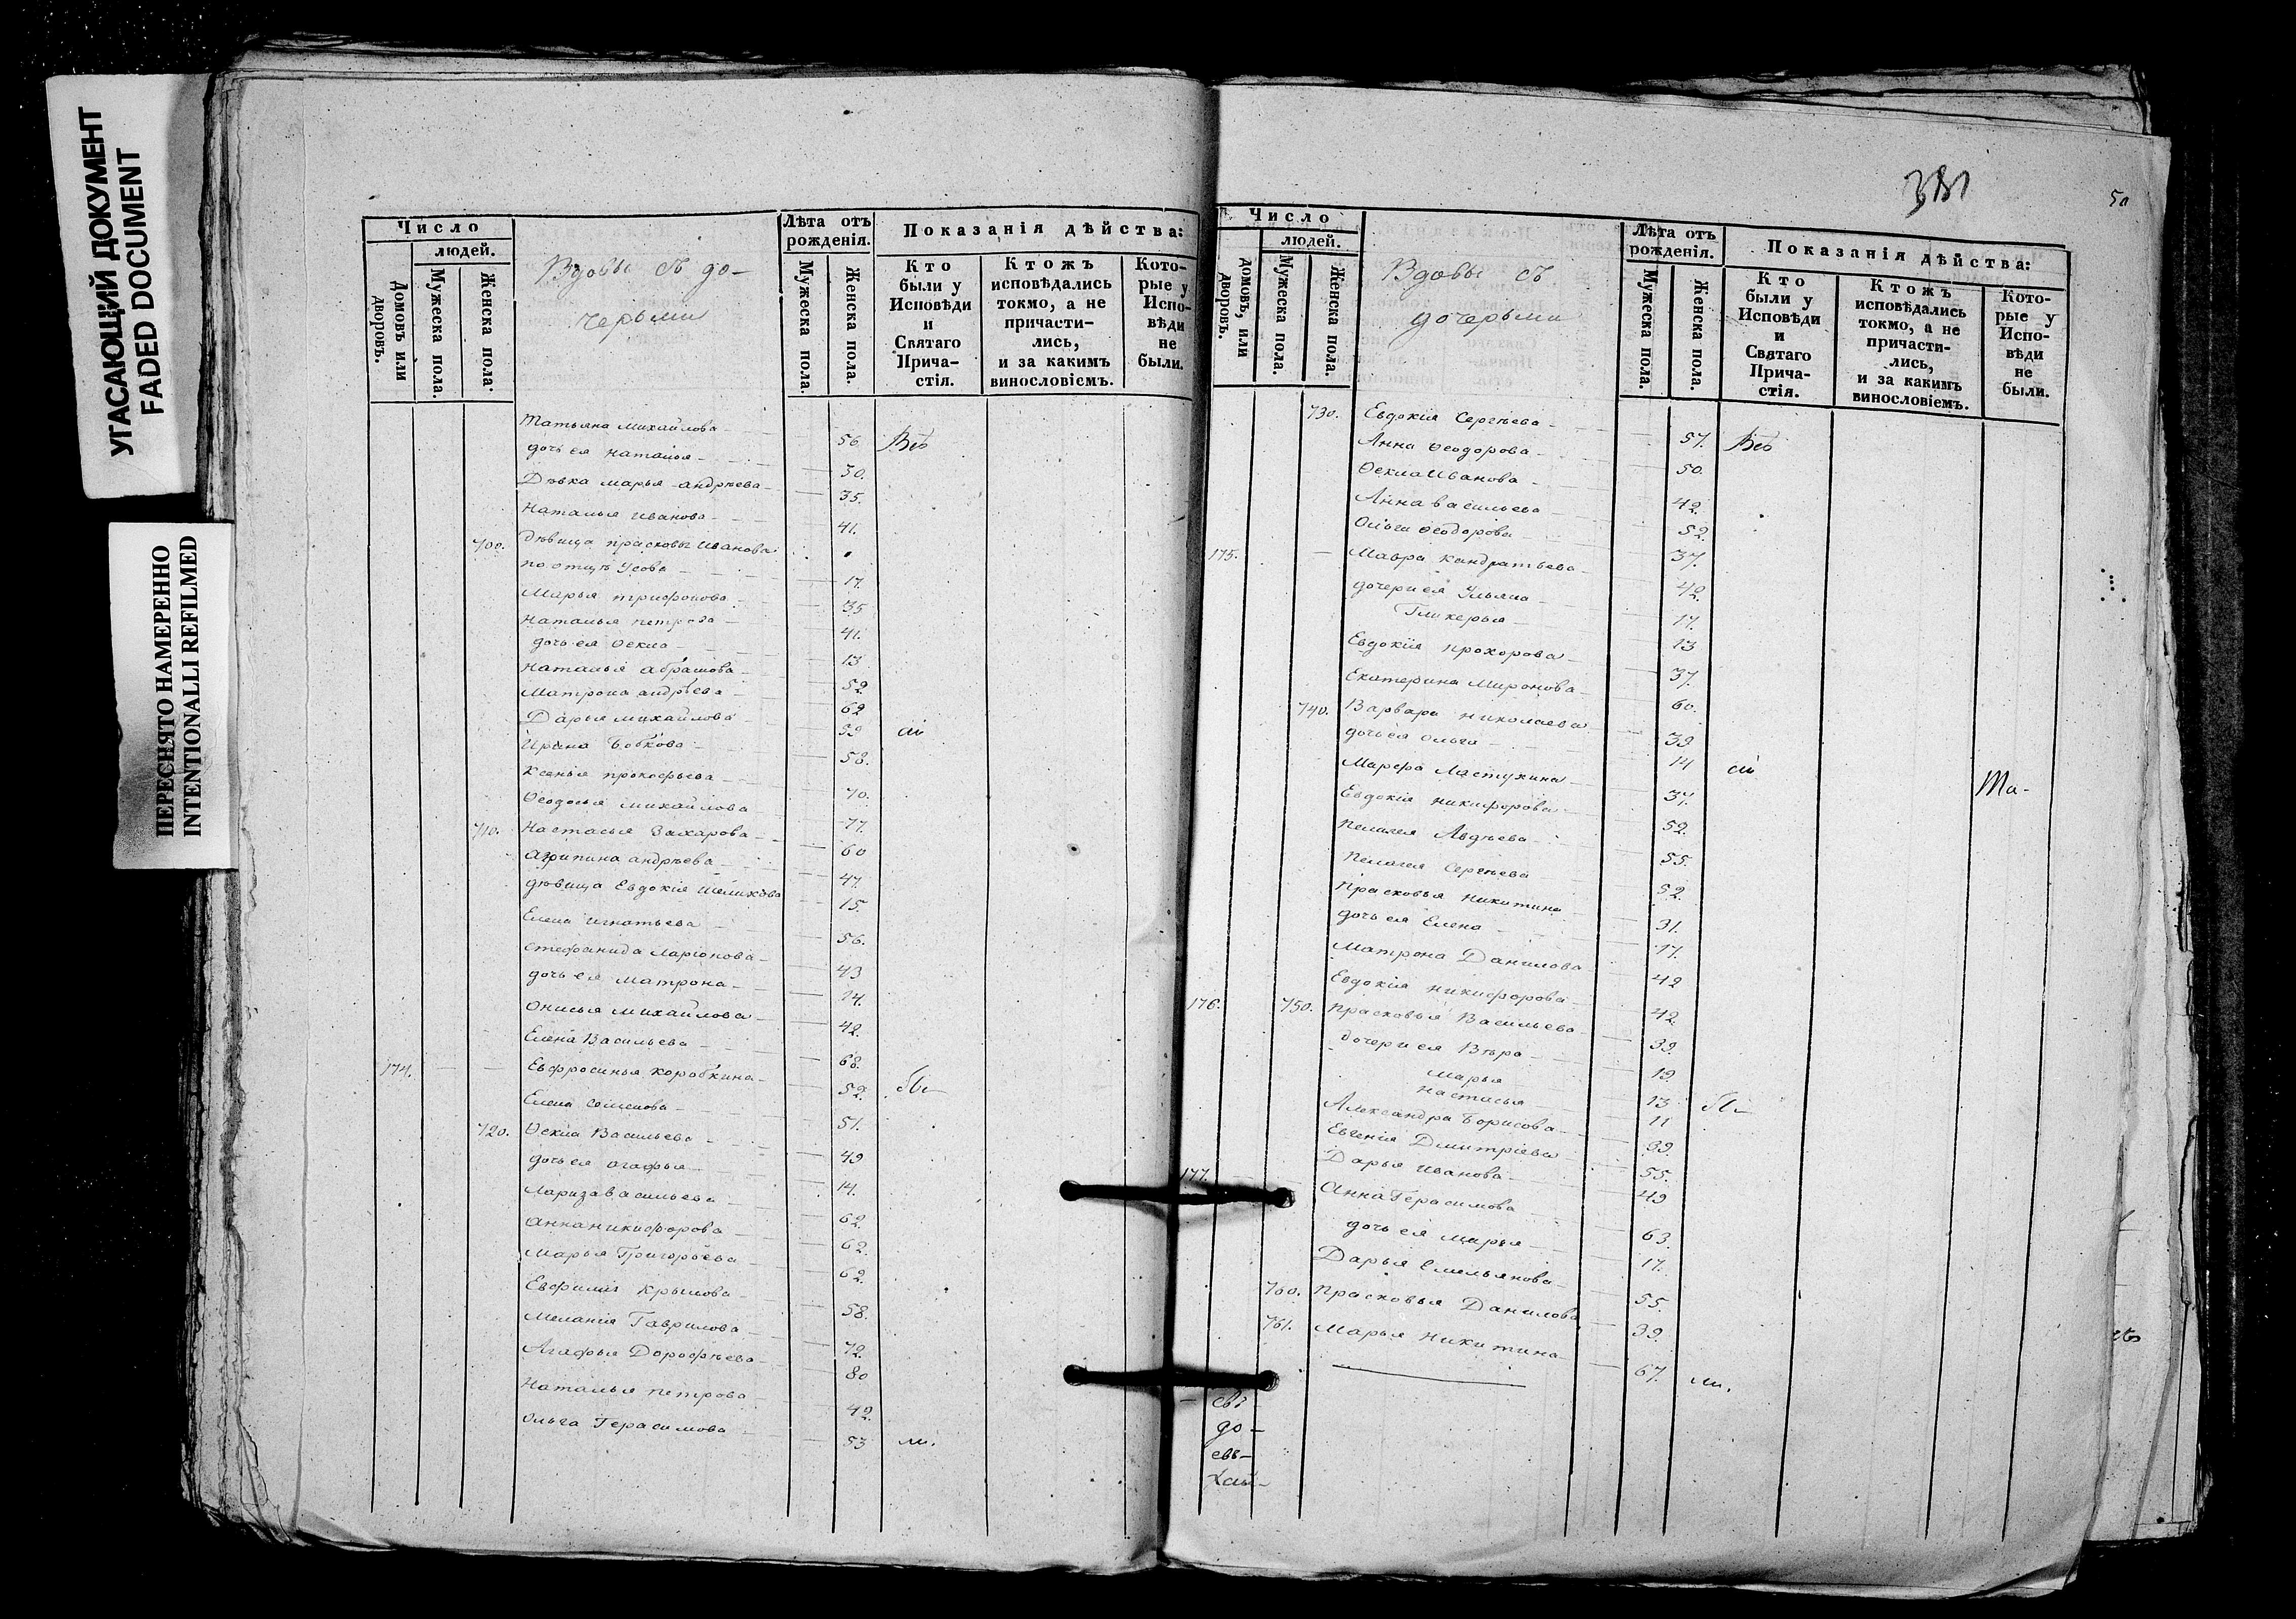 УГАСАЮЩИЙ ДОКУМЕНТ
FADED DOCUMENT
ПЕРЕСНЯТО НАМЕРЕННО
INTENTIONALLI REFILMED
Число
людей.
Домовъ или дворовъ.
Мужеска пола.
Женска пола.
Вдовы съ до-
черьми
Лѣта отъ рожденія.
Мужеска пола.
Женска пола.
Показанія дѣйства:
Кто были у Исповѣди и Святаго Прича-стія.
Ктожъ исповѣдались токмо, а не причасти-лись, и за какимъ винословіемъ.
Кото-рые у Испо-вѣди не были.
Татьяна Михайлова 56 Всѣ
дочь ея Наталья 30.
Дѣвка Марья Андрѣева 35.
Наталья Иванова 41.
700. Дѣвица Прасковья Иванова
по отцѣ Усова 17.
Марья Трифонова 35
Наталья Петрова 41.
дочь ея Ѳекла 13
Наталья Абрамова 52
Матрона Андрѣева 62
Дарья Михайлова 59
Ирина Бобкова 58.
Ксенья Прокофьева 70.
Ѳеодосья Михайлова 77.
710. Настасья Захарова 60
Агрипина Андрѣева 47.
дѣвица Евдокія Шелихова 15.
Елена Игнатьева 56.
Стефанида Ларіонова 43
дочь ея Матрона 14.
Онисья Михайлова 42.
Елена Васильева 68.
174. Евфросинья Коробкина 52. бы-
Елена Семенова 51.
720. Ѳекла Васильева 49
дочь ея Агафья 14.
Лариза Васильева 62.
Анна Никифорова 62.
Марья Григорьева 62.
Евфимія Крылова 58.
Меланія Гаврилова 72.
Агафья Дорофѣева 80
Наталья Петрова 42.
Ольга Герасимова 53 ли.
381
50
Число
людей.
домовъ, или дворовъ.
Мужеска пола.
Женска пола.
Вдовы съ
дочерьми
Лѣта отъ рожденія.
Мужеска пола.
Женска пола.
Показанія дѣйства:
Кто были у Исповѣди и Святаго Прича-стія.
Ктожъ исповѣдались токмо, а не причасти-лись, и за какимъ винословіемъ.
Кото-рые у Испо-вѣди не были.
730. Евдокія Сергѣева 57. Всѣ
Анна Ѳеодорова 50.
Ѳекла Иванова 42.
Анна Васильева 52.
Ольга Ѳеодорова 37.
175. Мавра Кандратьева 42.
дочери ея Ульяна 17.
Гликерья 13
Евдокія Прохорова 37.
Екатерина Миронова 60.
740. Варвара Николаева 39
дочь ея Ольга 14
Марфа Ластухина 37.
Евдокія Никифорова 52.
Пелагея Авдѣева 55.
Пелагея Сергѣева 52.
Прасковья Никитина 31.
дочь ея Елена 17.
Матрона Данилова 42
Евдокія Никифорова 42.
176. 750. Прасковья Васильева 39.
дочери ея Вѣра 19.
Марья 13 бы-
Настасья 11
Александра Борисова 39.
Евгенія Дмитріева 55.
177. Дарья Иванова 49
Анна Герасимова 63.
дочь ея Марья 17.
Дарья Емельянова 55.
760. Прасковья Данилова 39.
761. Марья Никитина 67. ли.